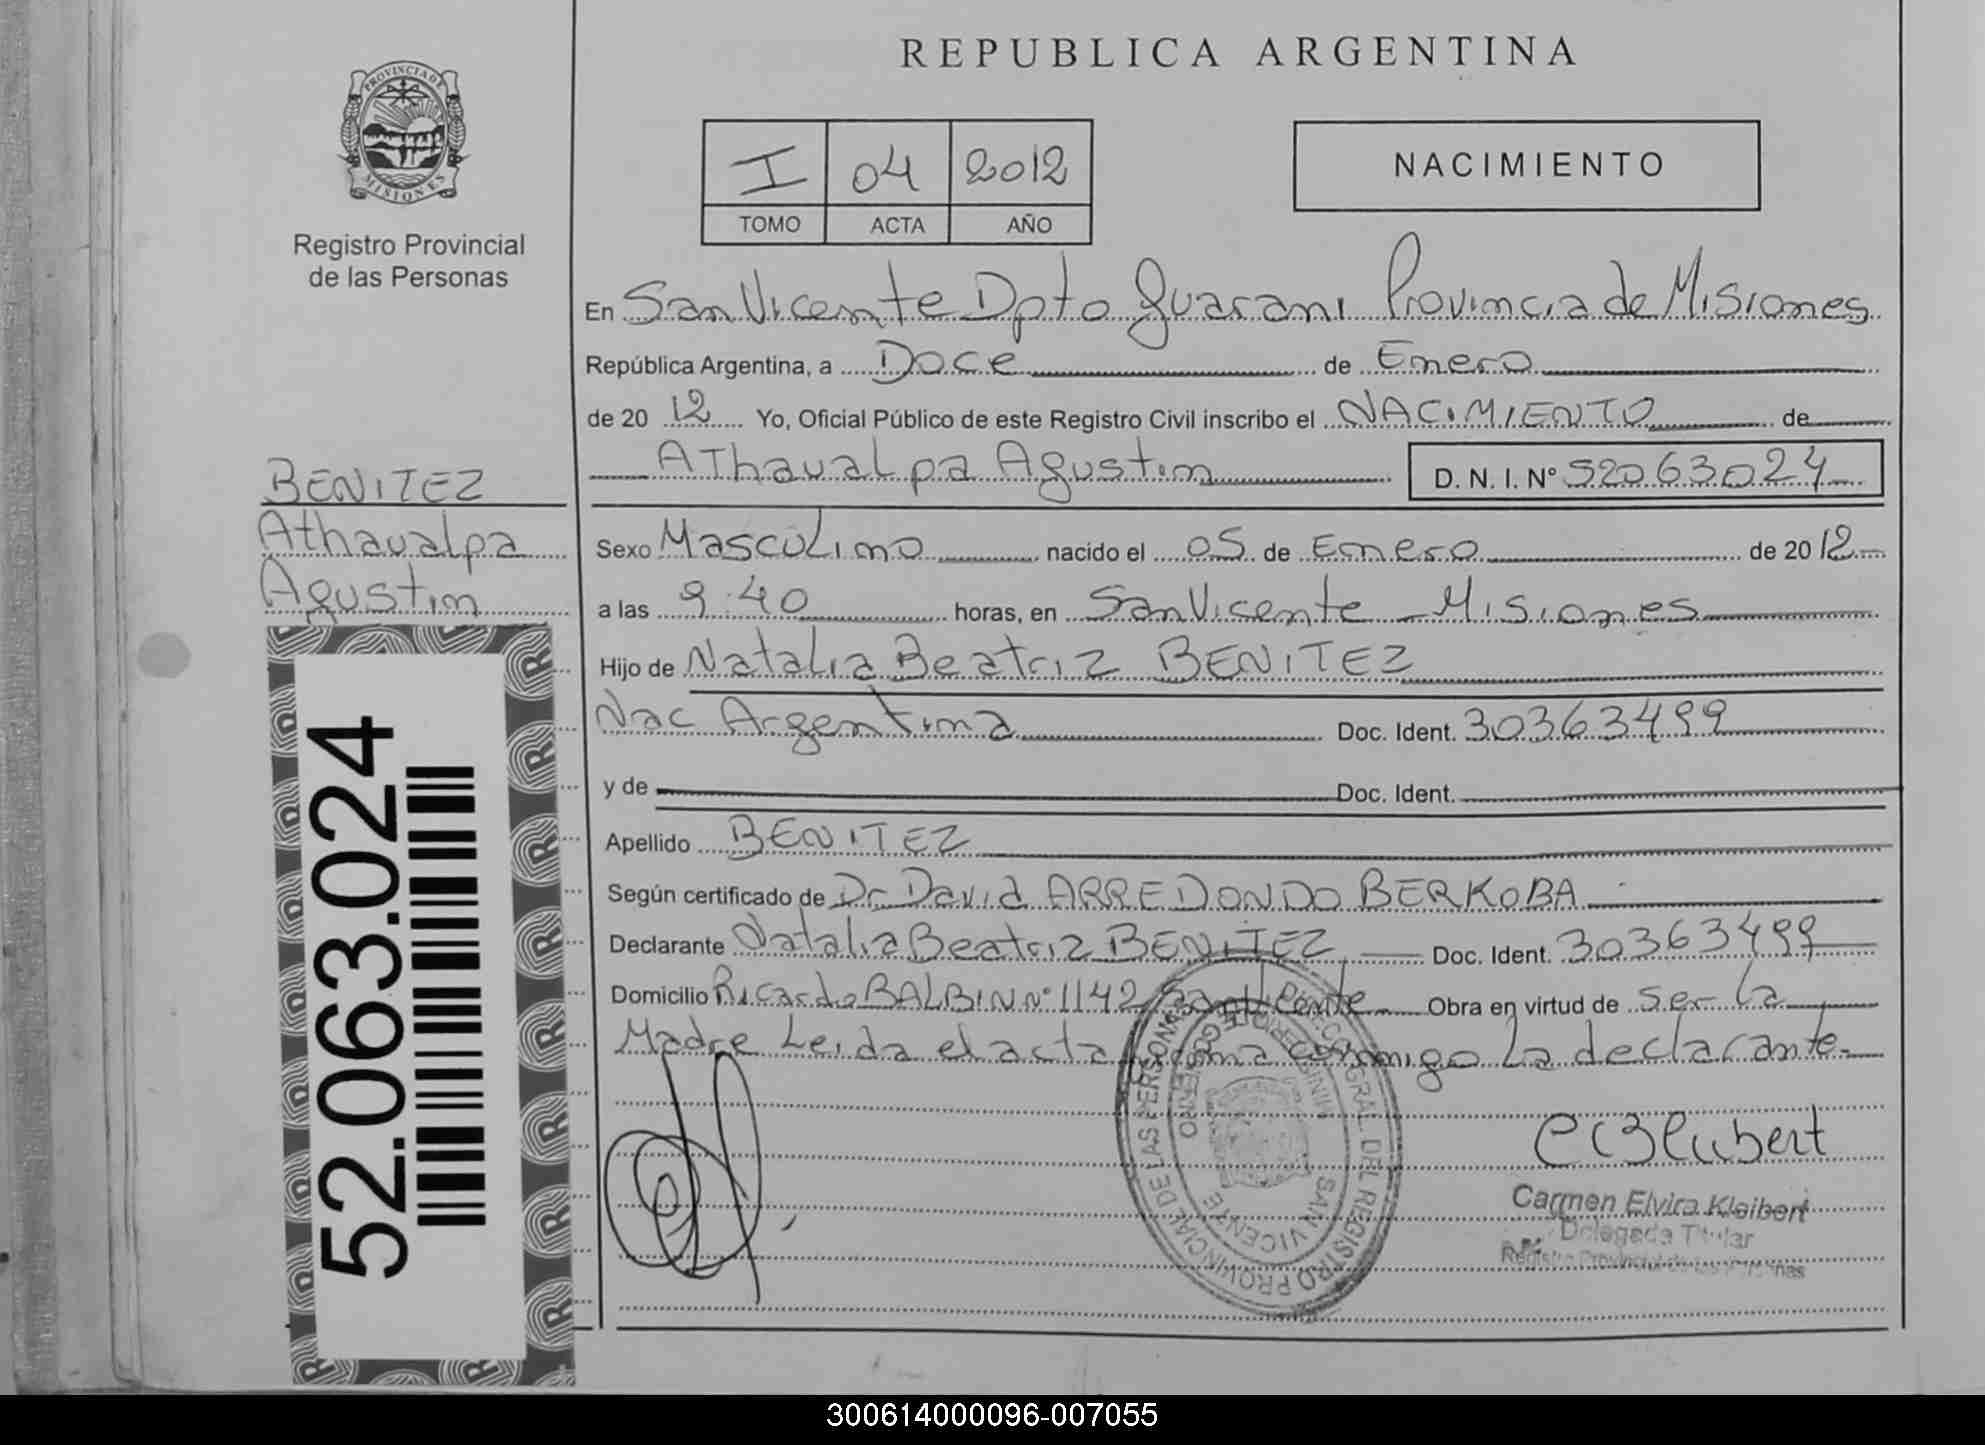 REPUBLICA ARGENTINA
PROVINCIA DE
MISIONES
Registro Provincial
de las Personas
I 04 2012
TOMO ACTA AÑO
NACIMIENTO
En San Vicente Dpto Guarani Provincia de Misiones
República Argentina, a Doce de Enero
de 20 12 Yo, Oficial Público de este Registro Civil inscribo el NACIMIENTO de
Athaualpa Agustin D. N. I. Nº 52063024
BENITEZ
Athaualpa
Agustin
52.063.024
Sexo Masculino nacido el 05 de Enero de 2012
a las 9:40 horas, en San Vicente - Misiones
Hijo de Natalia Beatriz BENITEZ
Nac Argentina Doc. Ident. 30363499
y de Doc. Ident.
Apellido BENITEZ
Según certificado de Dr David ARREDONDO BERKOBA
Declarante Natalia Beatriz BENITEZ Doc. Ident. 30363499
Domicilio Ricardo BALBIN Nº 1142 San Vicente Obra en virtud de ser la
Madre Leida el acta firma conmigo la declarante.
REGISTRO PROVINCIAL DE LAS PERSONAS
SAN VICENTE
Carmen Elvira Kleibert
Delegada Titular
Registro Provincial de las Personas
300614000096-007055